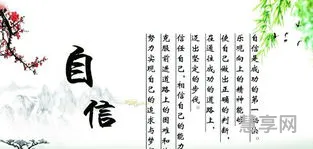 自信
自信是成功的第一秘诀。
乐观向上的精神能
使自己做出正确的判断，
在通往成功的道路上，
迈出坚定的步伐。
信任自己，相信自己的能力
克服前进道路上的困难和
努力实现自己的追求与梦
慧享网